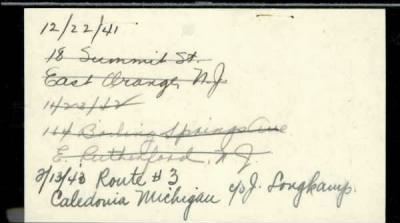 12/22/41
18 Summit St.
East Orange, N.J
1/23/42
114 Boiling Springs Ave
E. Rutherford, N.J.
3/13/43 Route # 3
Caledonia Michigan c/o J. Longkamp.